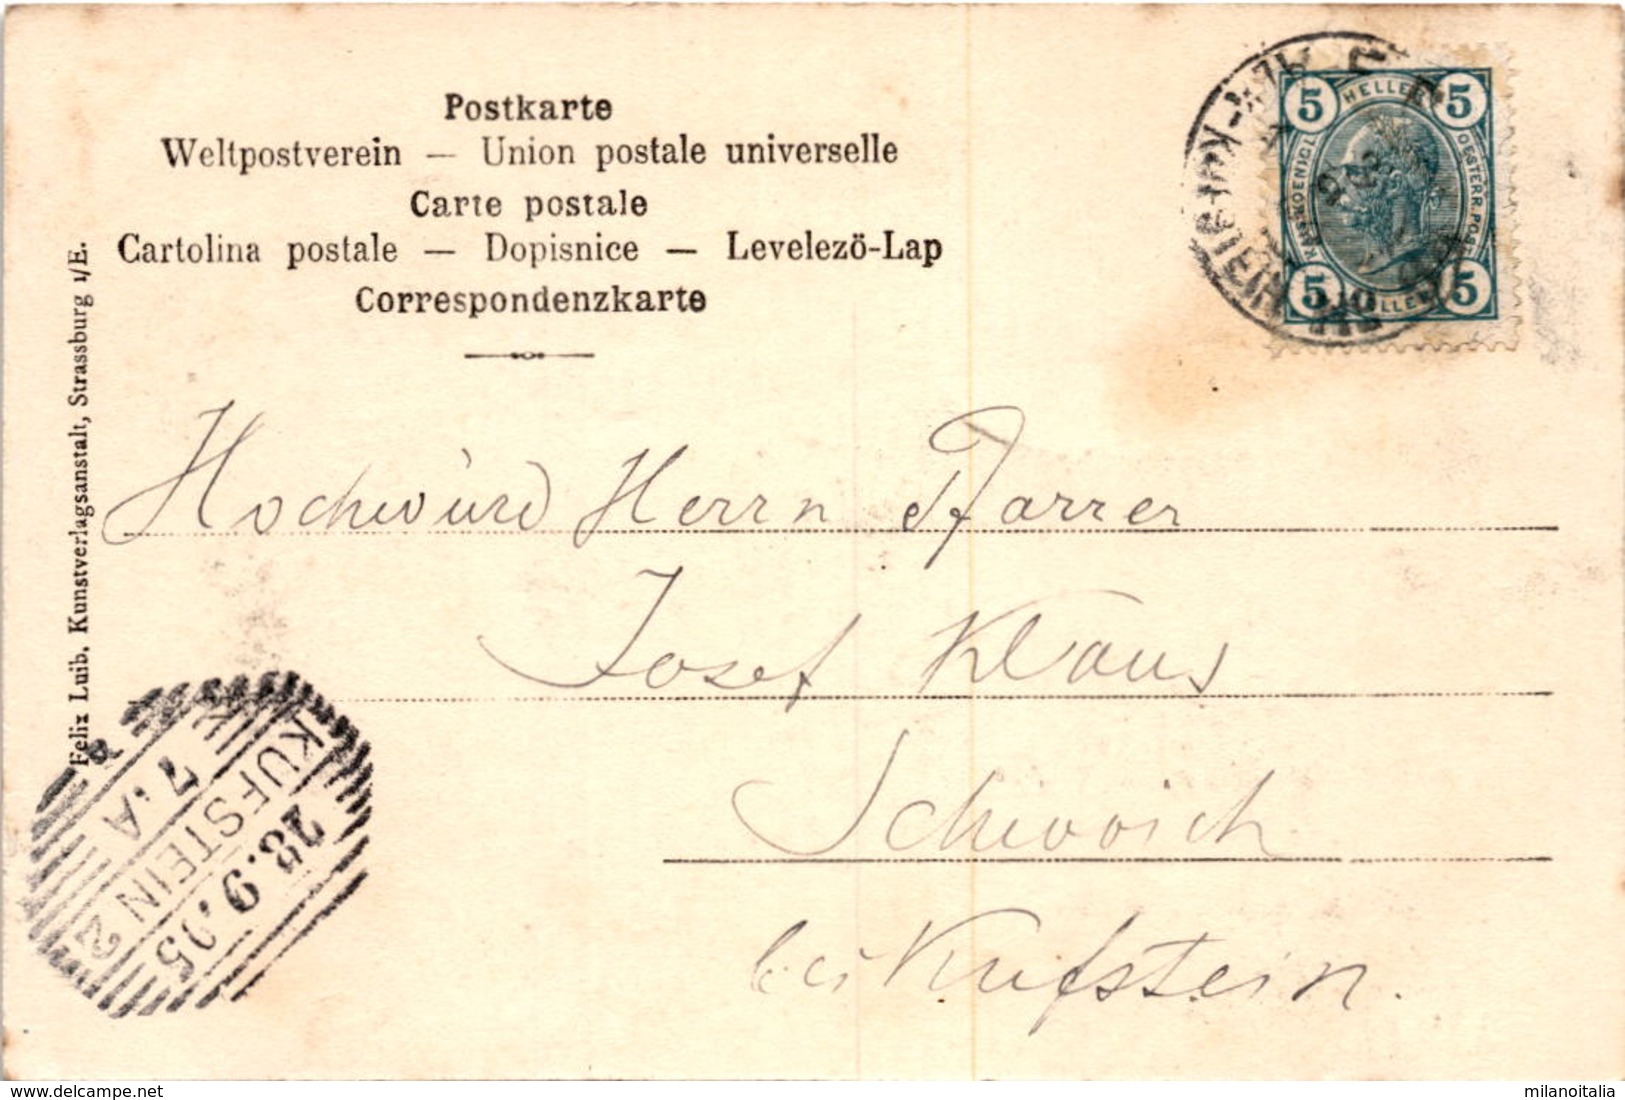 Postkarte
Weltpostverein — Union postale universelle
Carte postale
Cartolina postale — Dopisnice — Levelezö-Lap
Correspondenzkarte
Felix Luib, Kunstverlagsanstalt, Strassburg i/E.
5 HELLER 5
KAIS.KOENIGL.
OESTERR.POST
5 HELLER 5
Hochwürd Herrn Pfarrer
Josef Klaus
Schwoich
bei Kufstein.
KUFSTEIN 2
28.9.05
7.A
delcampe.net
milanoitalia